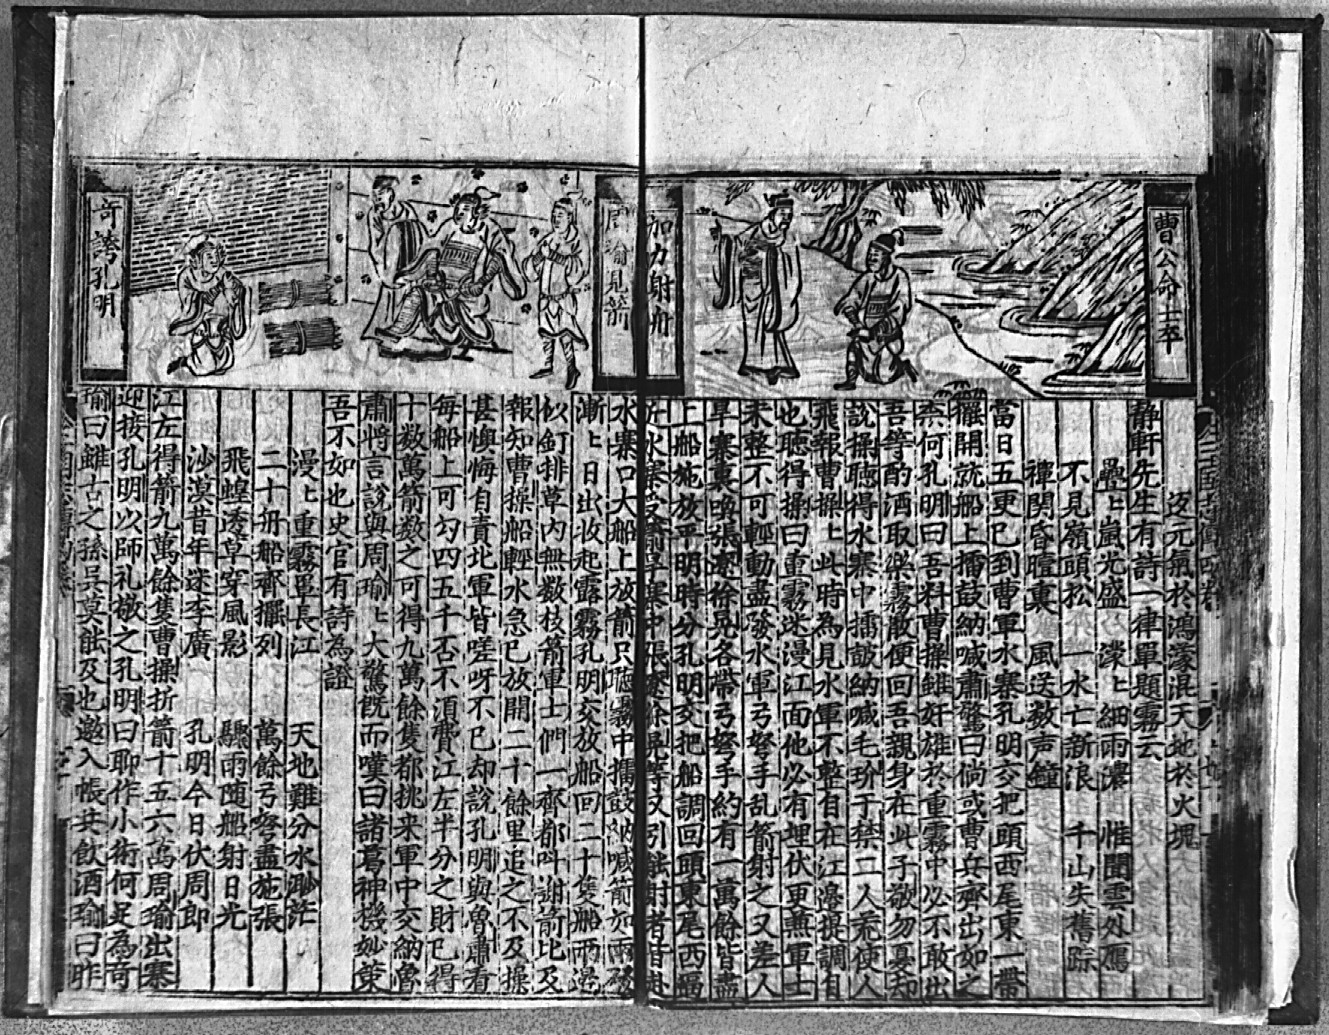 曹公命士卒
加力射舟
迓元氣於鴻濛混天地於火塊
靜軒先生有詩一律單題霧云
疊〻嵐光盛 濛〻細雨濃 惟聞雲外鴈
不見嶺頭松 一水亡新浪 千山失舊踪
禪関昏曀裏 風送数声鐘
當日五更已到曹軍水寨孔明交把頭西尾東一帶
擺開就船上擂鼓納喊肅驚曰倘或曹兵齊出如之
柰何孔明曰吾料曹操雖奸雄於重霧中必不敢出
吾等酌酒取樂霧散便回吾親身在此子敬勿憂却
說操聽得水寨中擂鼓納喊毛玠于禁二人荒使人
飛報曹操〻此時為見水軍不整自在江邊提調自
也聽得操曰重霧迷漫江面他必有埋伏更兼軍士
未整不可輕動盡發水軍弓弩手乱箭射之又差人
旱寨裏喚張遼徐晃各帶弓弩手約有一萬餘皆盡
上船施放平明時分孔明交把船調回頭東尾西逼
近水寨受箭旱寨中張遼徐晃等又引能射者皆赴
周瑜見箭
奇誇孔明
水寨口大船上放箭只聽霧中擂鼓納喊箭如雨發
漸〻日出收起露霧孔明交放船回二十隻船兩邊
似釘排草內無数枝箭軍士們一齊都叫謝箭比及
報知曹操船輕水急已放開二十餘里追之不及操
甚懊悔自責北軍皆嗟呀不已却說孔明與魯肅看
每船上可勾四五千否不湏費江左半分之財已得
十数萬箭数之可得九萬餘隻都挑来軍中交納魯
肅將言說與周瑜〻大驚既而嘆曰諸葛神機妙策
吾不如也史官有詩為證
漫〻重霧罩長江 天地難分水渺茫
二十舟船齊擺列 萬餘弓弩盡施張
飛蝗透草穿風影 驟雨随船射日光
沙漠昔年迷李廣 孔明今日伏周郎
江左得箭九萬餘隻曹操折箭十五六萬周瑜出寨
迎接孔明以師礼敬之孔明曰聊作小術何足為奇
瑜曰雖古之孫吳莫能及也邀入帳共飲酒瑜曰昨